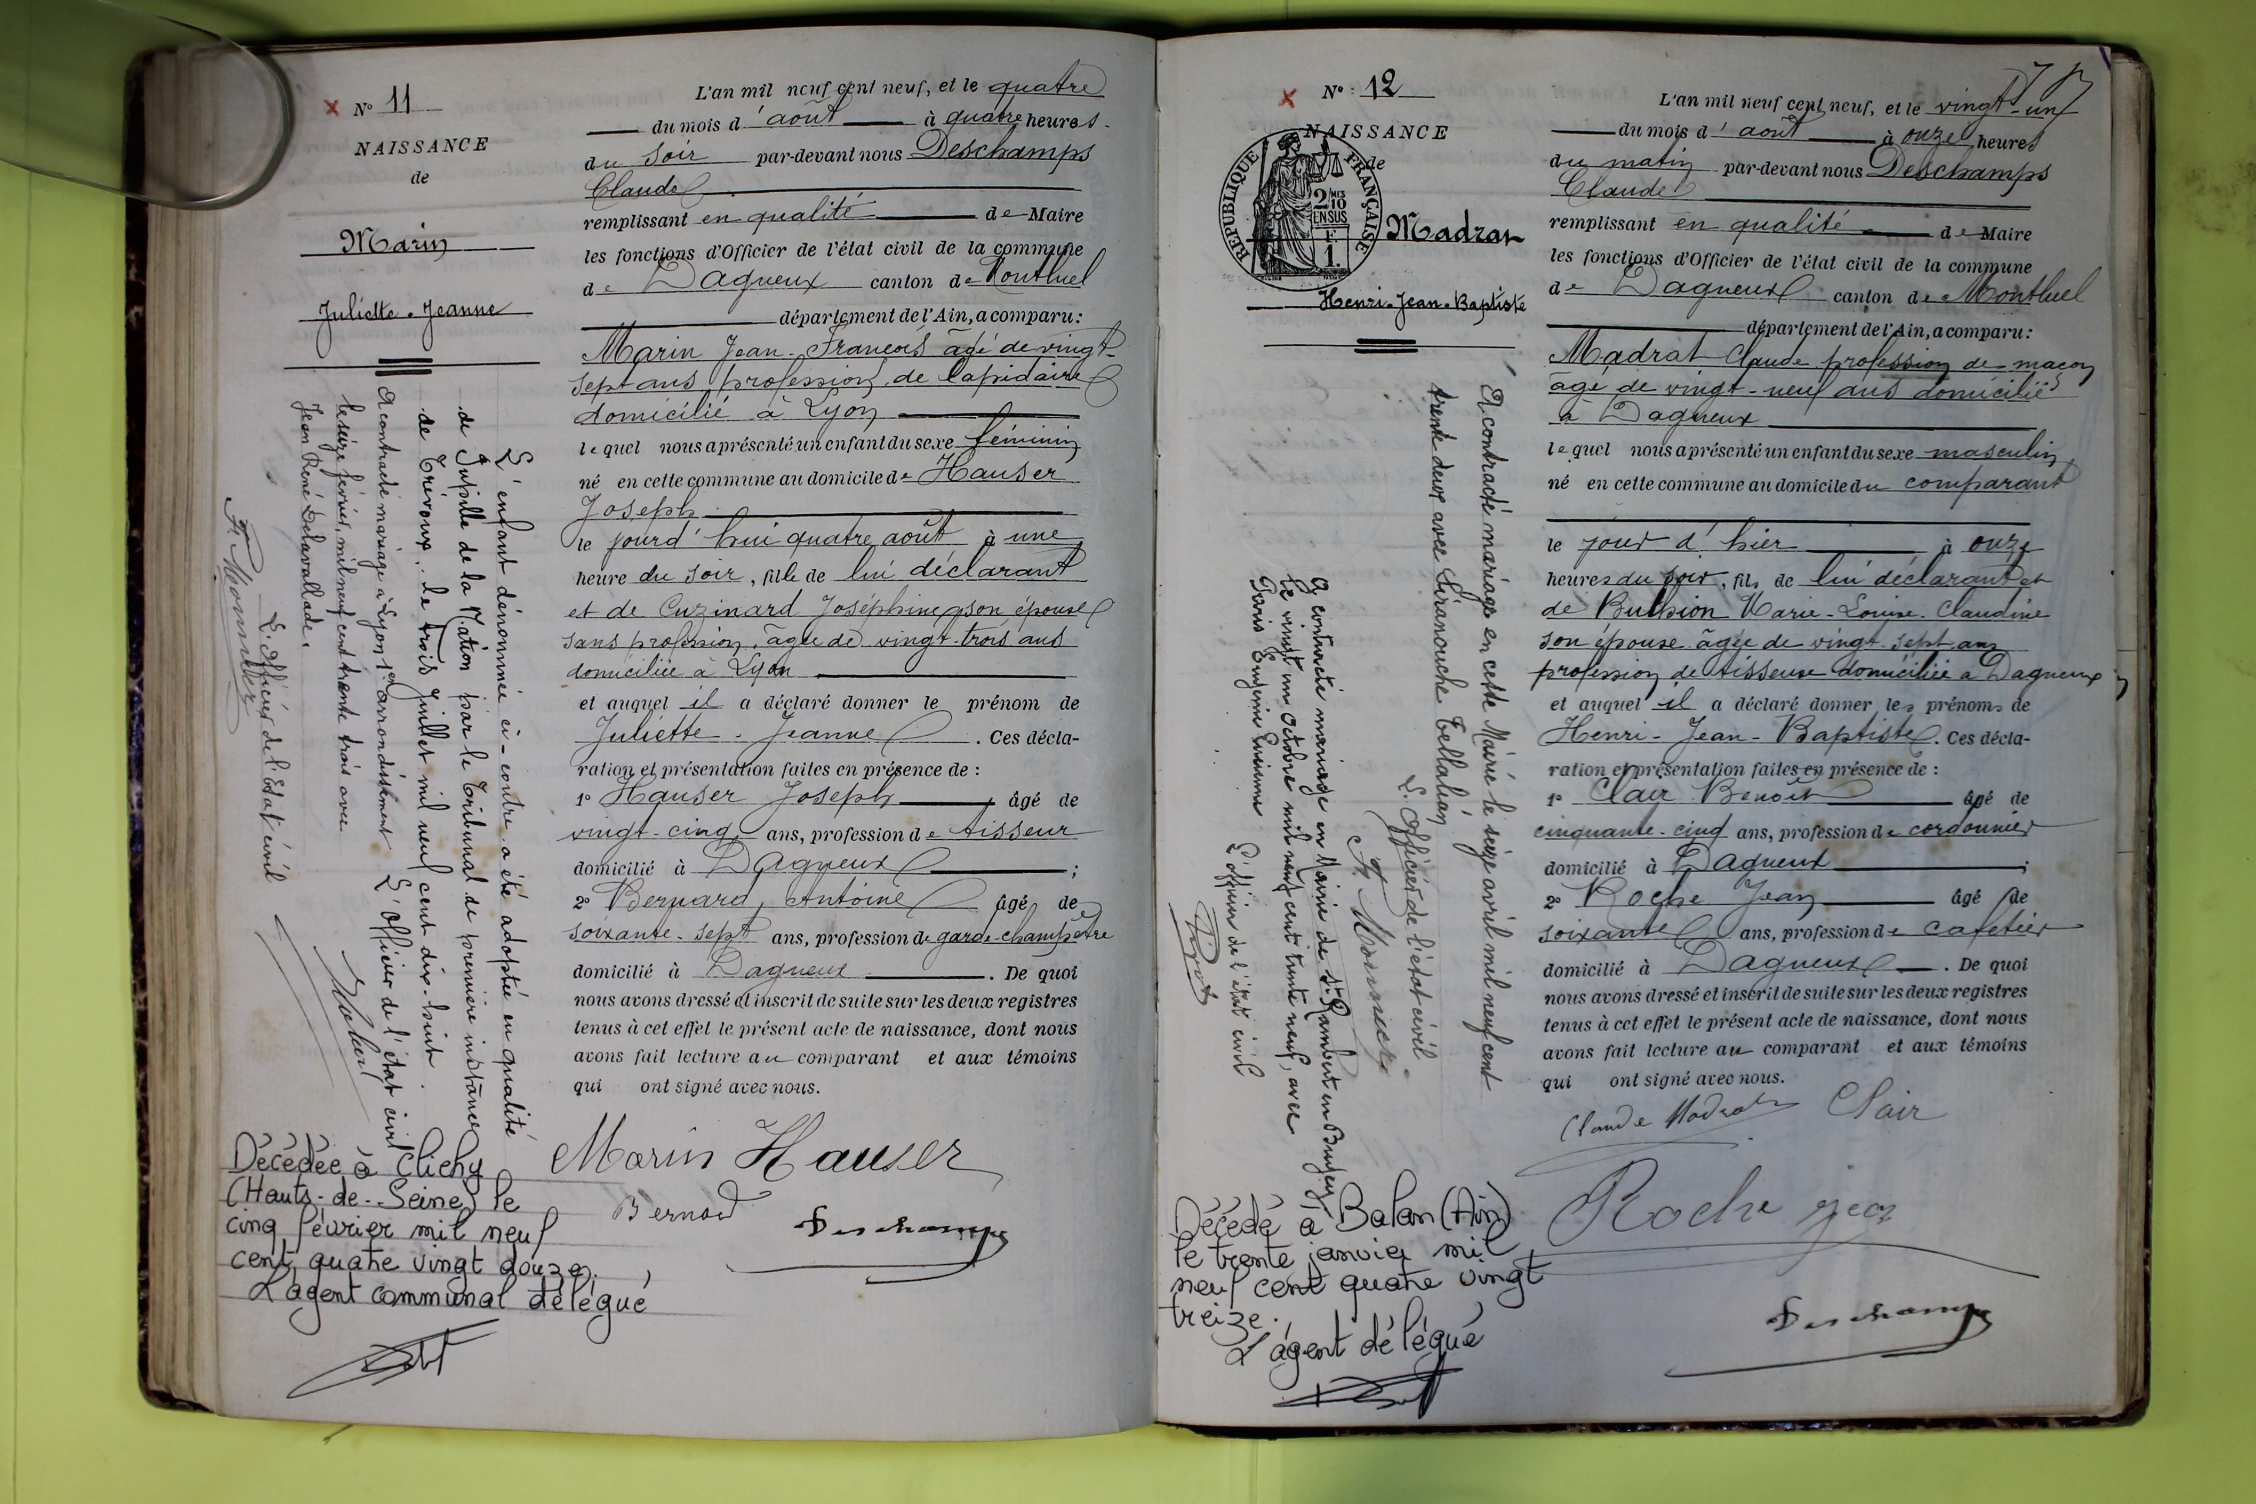 × N° 11
NAISSANCE
de
Marin
Juliette-Jeanne
L'enfant dénommée ci-contre a été adoptée en qualité
de Pupille de la Nation par le Tribunal de première instance
de Trévoux. le trois juillet mil neuf cent dix-huit.
L'officier de l'état civil
A contracté mariage à Lyon 1er arrondissement
le seize février mil neuf cent trente trois avec
Jean René Delavallade.
L'Officier de l'Etat civil
Décédée à Clichy
(Hauts-de-Seine) le
cinq février mil neuf
cent quatre vingt douze.
L'agent communal délégué
L'an mil neuf cent neuf, et le quatre
du mois d'août à quatre heures
du soir par-devant nous Deschamps
Claude
remplissant en qualité de Maire
les fonctions d'Officier de l'état civil de la commune
de Dagneux canton de Montluel
département de l'Ain, a comparu:
Marin Jean-François âgé de vingt-
sept ans profession de lapidaire
domicilié à Lyon
lequel nous a présenté un enfant du sexe féminin
né en cette commune au domicile de Hauser
Joseph
le jourd'hui quatre août à une
heure du soir, fille de lui déclarant
et de Cuzinard Joséphine son épouse
sans profession, âgée de vingt-trois ans
domiciliée à Lyon
et auquel il a déclaré donner le prénom de
Juliette-Jeanne. Ces décla-
ration et présentation faites en présence de :
1° Hauser Joseph, âgé de
vingt-cinq ans, profession de tisseur
domicilié à Dagneux ;
2° Bernard, Antoine âgé de
soixante-sept ans, profession de garde-champêtre
domicilié à Dagneux. De quoi
nous avons dressé et inscrit de suite sur les deux registres
tenus à cet effet le présent acte de naissance, dont nous
avons fait lecture au comparant et aux témoins
qui ont signé avec nous.
Marin Hauser
Bernard
Deschamps
× N° 12
NAISSANCE
de
REPUBLIQUE FRANÇAISE
2/10
EN SUS
F.
1.
Madrat
Henri-Jean-Baptiste
A contracté mariage en cette Mairie le seize avril mil neuf cent
trente deux avec Siranouche Tellalian
L'Officier de l'état civil
A contracté mariage en Mairie de St Rambert en Bugey
le vingt un octobre mil neuf cent trente neuf, avec
L'officier de l'état civil
Décédé à Balan (Ain)
le trente janvier mil
neuf cent quatre vingt
treize.
L'agent délégué
L'an mil neuf cent neuf, et le vingt-un
du mois d'août à onze heures
du matin par-devant nous Deschamps
Claude
remplissant en qualité de Maire
les fonctions d'Officier de l'état civil de la commune
de Dagneux canton de Montluel
département de l'Ain, a comparu:
Madrat Claude profession de maçon
âgé de vingt-neuf ans domicilié
à Dagneux
lequel nous a présenté un enfant du sexe masculin
né en cette commune au domicile du comparant
le jour d'hier à onze
heures du soir, fils de lui déclarant et
de Buthion Marie-Louise-Claudine
son épouse âgée de vingt-sept ans
profession de tisseuse domiciliée à Dagneux
et auquel il a déclaré donner les prénoms de
Henri-Jean-Baptiste. Ces décla-
ration et présentation faites en présence de :
1° Clair Benoît âgé de
cinquante-cinq ans, profession de cordonnier
domicilié à Dagneux ;
2° Roche Jean âgé de
soixante ans, profession de cafetier
domicilié à Dagneux. De quoi
nous avons dressé et inscrit de suite sur les deux registres
tenus à cet effet le présent acte de naissance, dont nous
avons fait lecture au comparant et aux témoins
qui ont signé avec nous.
Claude Madrat Clair
Roche Jean
Deschamps